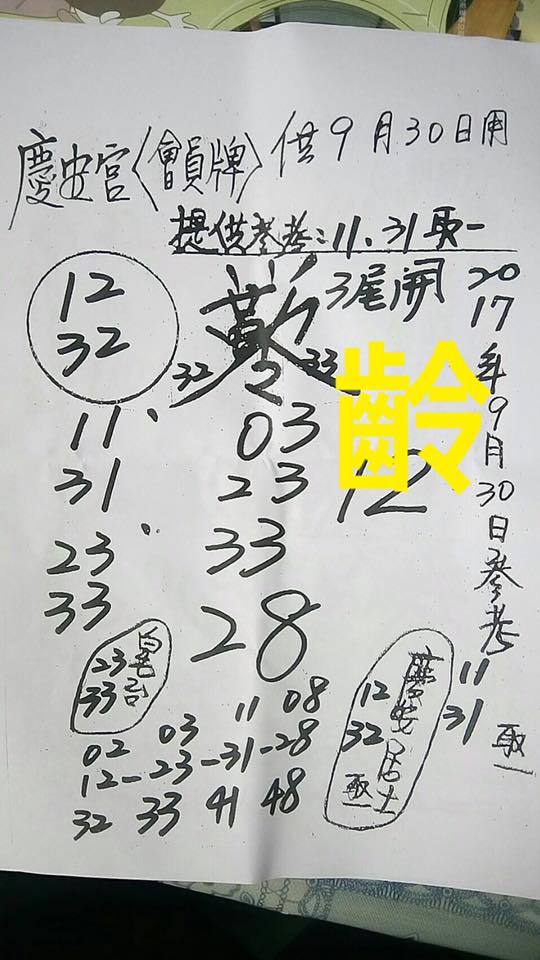 慶安宮〈會員牌〉供9月30日用
提供參考:11、31取一
12
32
3尾開
2017年9月30日參考
32 2 33
齡
11、
31
03
23
33
12
23
33
28
23
33
慶安居士
12
32
取一
11
31
取一
11 08
02 03
12-23-31-28
32 33 41 48